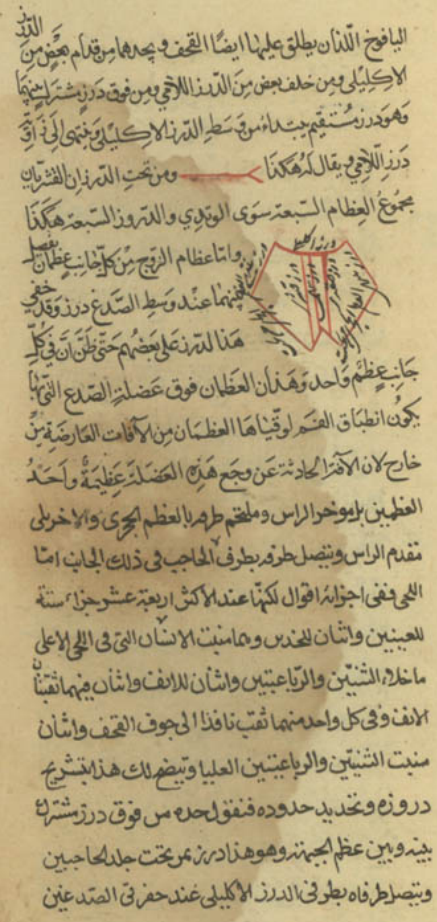 الدرز
اليافوخ اللذان يطلق عليهما ايضًا القحف ويحدهما من قدام بعض من
الاكليلي ومن خلف بعض من الدرز اللامي ومن فوق درز مشترك بينهما
وهو درز مستقيم مبتداء من وسط الدرز الاكليلي وينتهى الى زاوية
درز اللامي ويقال له هكذا ومن تحت الدرزان القشريان
مجموع العظام السبعة سوى الوتدي والدروز السبعة هكذا
واما عظام الزوج من كل جانب عظمان يفصل
بينهما عند وسط الصدغ درز وقد خفي
هذا الدرز على بعضهم حتى ظن ان في كل
جانب عظم واحد وهذان العظمان فوق عضلة الصدغ التي بها
يكون انطباق الفم لوقياها العظمان من الآفات العارضة من
خارج لان الآفة الحادثة عن وجع هذه العضلة عظيمة واحد
العظمين يلي موخر الراس وملتحم طرفه بالعظم الحجري والاخر يلي
مقدم الراس ويتصل طرفه بطرف الحاجب في ذلك الجانب اما
اللحى ففي اجزائه اقوال لكنها عند الاكثر اربعة عشر جزاء ستة
للعينين واثنان للخدين وهما منبت الاسنان التي في اللحى الاعلى
ماخلاء الثنيتين والرباعيتين واثنان للانف واثنان فيهما ثقبتا
الانف وفي كل واحد منهما ثقب نافذ الى جوف القحف واثنان
منبت الثنيتين والرباعيتين العليا ويتضح لك هذا بتشريح
دروزه وتحديد حدوده فنقول حده من فوق درز مشترك
بينه وبين عظم الجبهة وهو هذا درز يمر تحت جلد الحاجبين
ويتصل طرفاه بطرفي الدرز الاكليلي عند حفرتي الصدغين